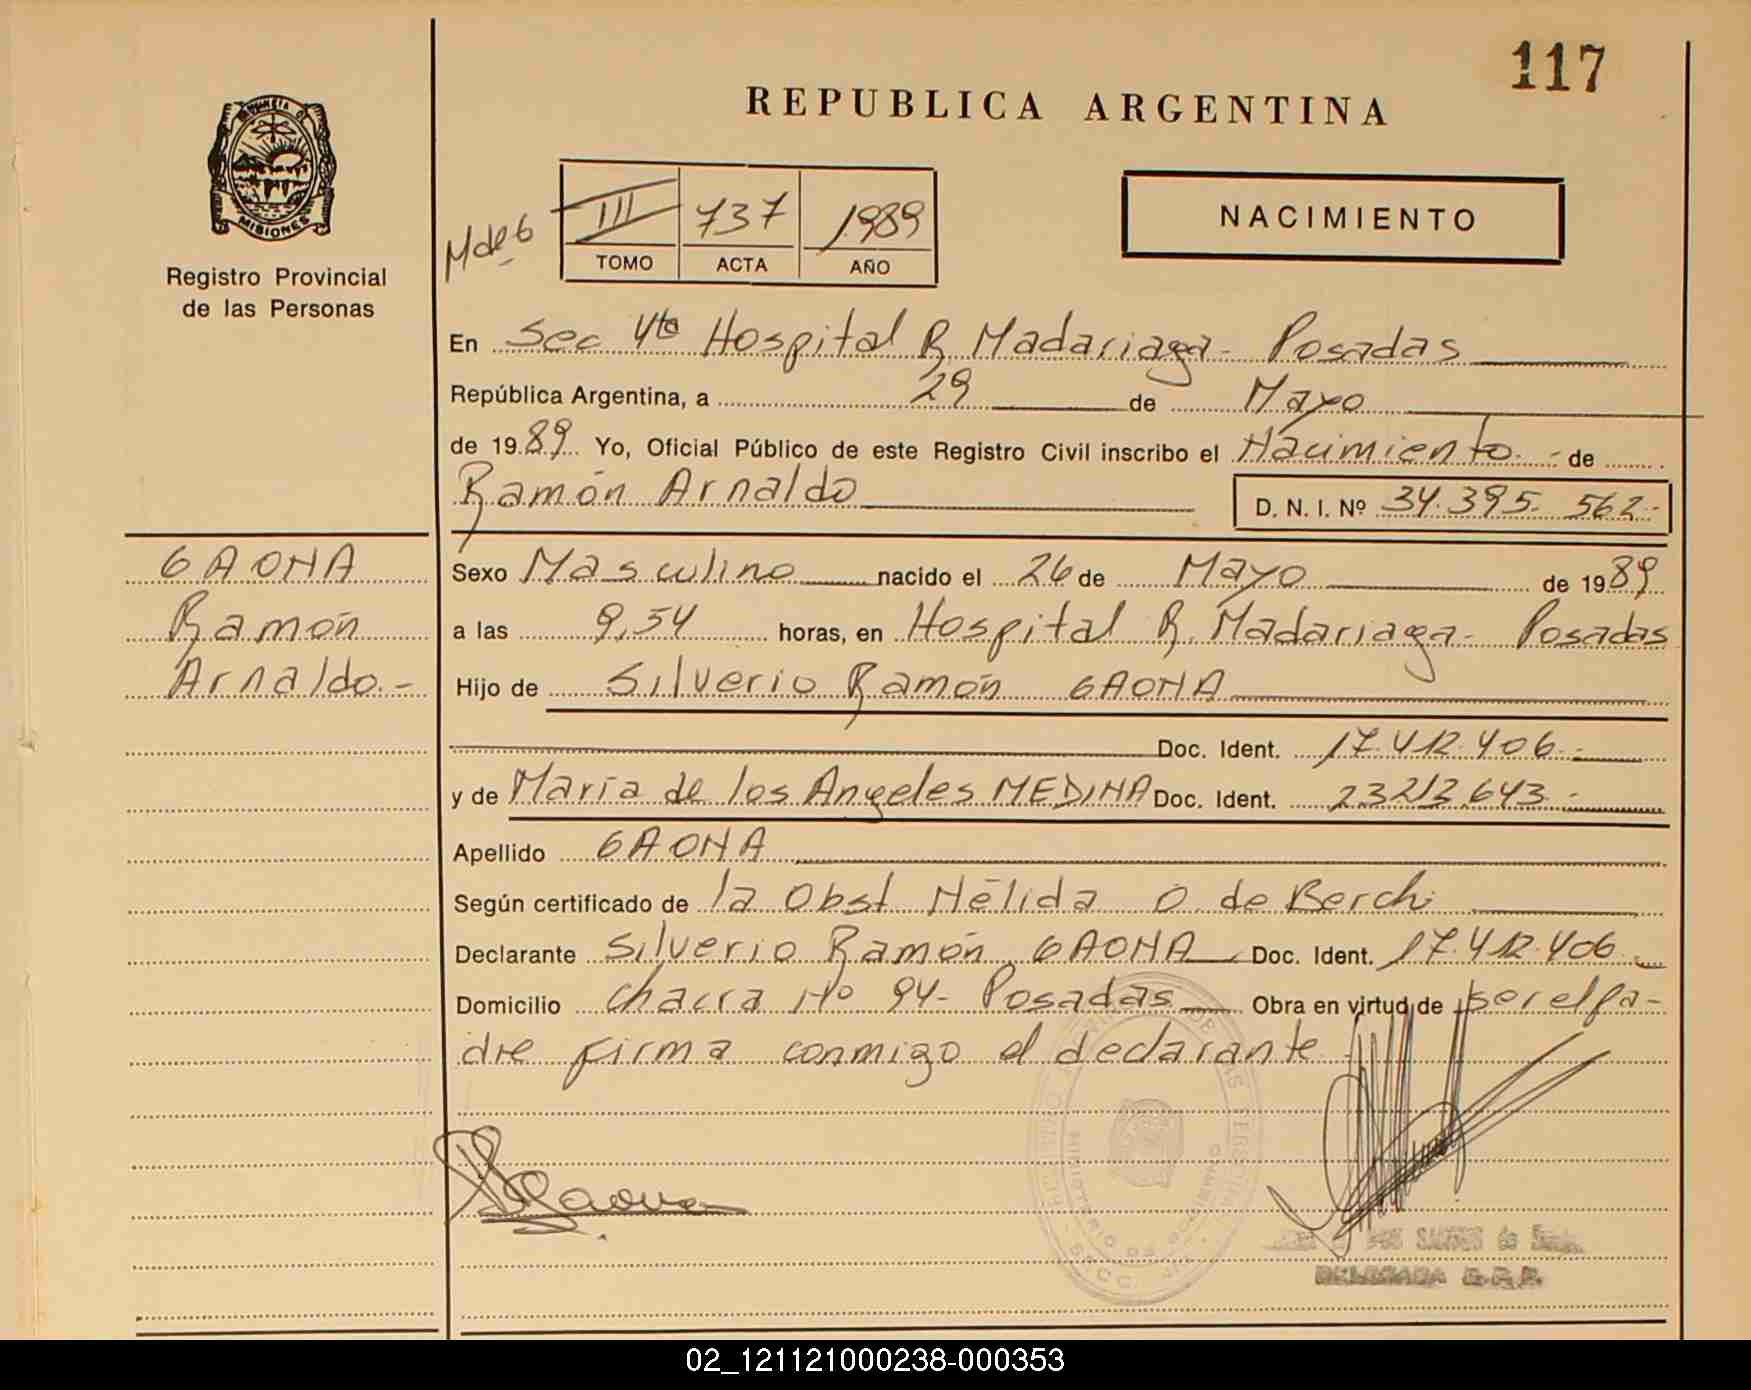 117
REPUBLICA ARGENTINA
PROVINCIA DE
MISIONES
Registro Provincial
de las Personas
III 737 1989
TOMO ACTA AÑO
NACIMIENTO
En Sec 4ta Hospital R. Madariaga - Posadas
República Argentina, a 29 de Mayo
de 1989 Yo, Oficial Público de este Registro Civil inscribo el Nacimiento - de
Ramón Arnaldo
D. N. I. Nº 34.395.562-
GAONA
Ramón
Arnaldo.-
Sexo Masculino nacido el 26 de Mayo de 1989
a las 9,54 horas, en Hospital R. Madariaga - Posadas
Hijo de Silverio Ramón GAONA
Doc. Ident. 17.412.406.-
y de María de los Angeles MEDINA Doc. Ident. 23.213.643.-
Apellido GAONA
Según certificado de la Obst Nélida O. de Berchi
Declarante Silverio Ramón GAONA Doc. Ident. 17.412.406.-
Domicilio Chacra Nº 94- Posadas Obra en virtud de ser el pa-
dre firma conmigo el declarante.
MINISTERIO DE GOBIERNO
DOS SANTOS de
DELEGADA
02_121121000238-000353